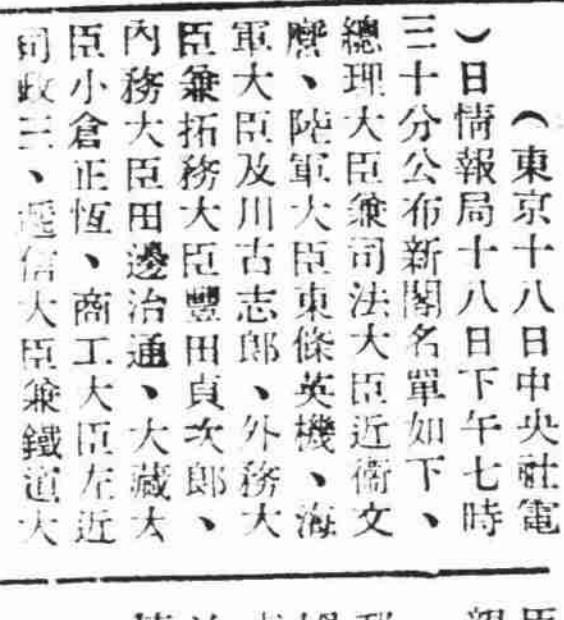 （東京十八日中央社電
）日情報局十八日下午七時
三十分公布新閣名單如下、
總理大臣兼司法大臣近衞文
麿、陸軍大臣東條英機、海
軍大臣及川古志郎、外務大
臣兼拓務大臣豐田貞次郎、
內務大臣田邊治通、大藏大
臣小倉正恆、商工大臣左近
司政三、遞信大臣兼鐵道大